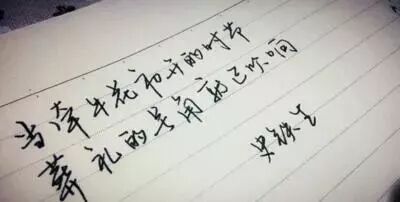 当牵牛花初开的时节
葬礼的号角就已吹响
史铁生